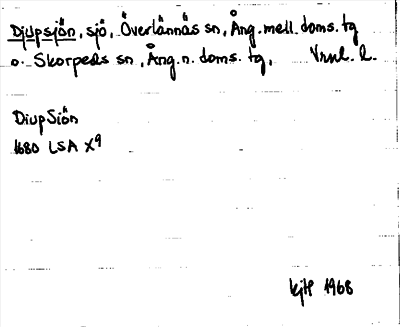 Djupsjön, sjö, Överlännäs sn, Ång. mell. doms. tg
o. Skorpeds sn, Ång. n. doms. tg, Vrnl. l.
DiupSiön
1680 LSA X9
1968